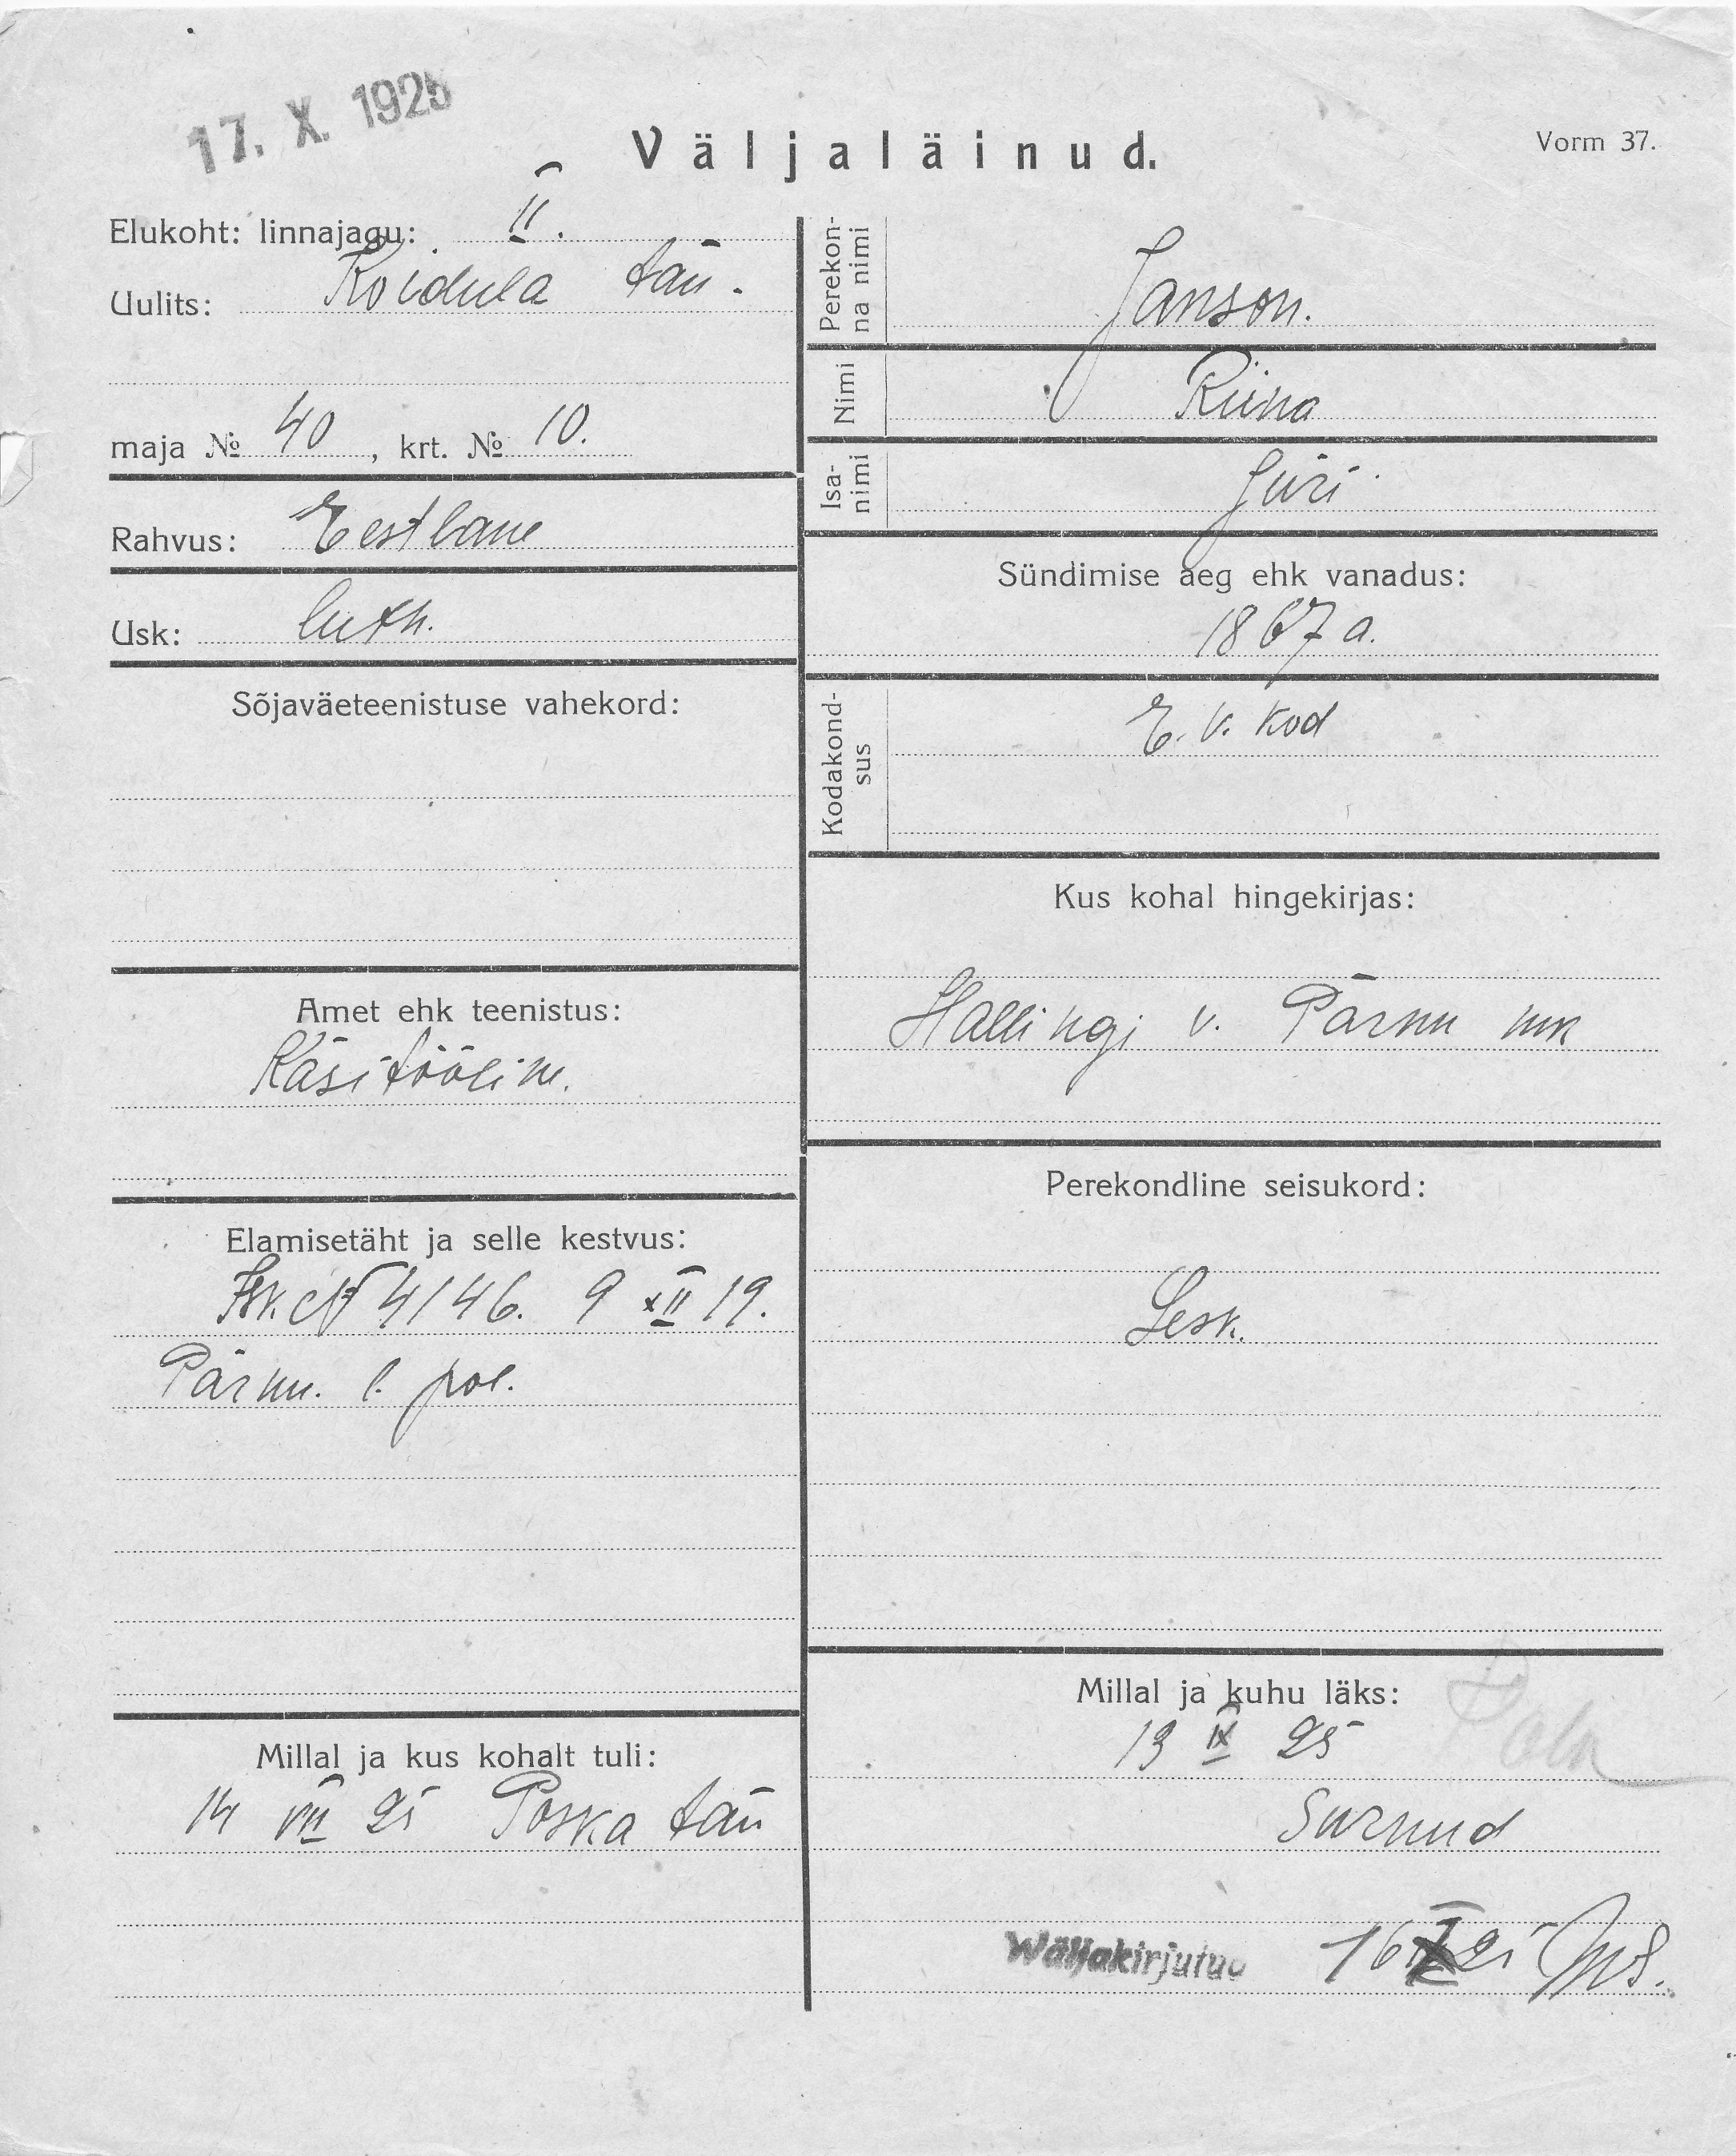 17. X. 1925
Väljaläinud.
Vorm 37.
Elukoht: linnajagu: II.
Uulits: Koidula tän.
maja № 40, krt. № 10.
Rahvus: Eestlane
Usk: luth.
Sõjaväeteenistuse vahekord:
Amet ehk teenistus:
Käsitööline.
Elamisetäht ja selle kestvus:
Isk. № 4146. 9 XII 19.
Pärnu. l. pol.
Millal ja kus kohalt tuli:
14 VII 25 Poska tän
Perekon-
na nimi
Janson.
Nimi
Riina
Isa-
nimi
Jüri
Sündimise aeg ehk vanadus:
1867 a.
Kodakond-
sus
E. V. kod
Kus kohal hingekirjas:
Hallingi v. Pärnu mk
Perekondline seisukord:
Lesk.
Millal ja kuhu läks:
13 IX 25
Surnud
Wäljakirjutud 16 X 25